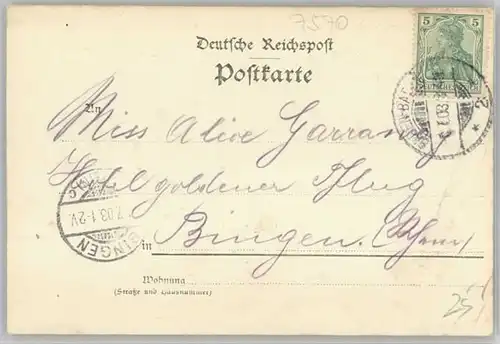 7570
Deutsche Reichspost
Postkarte
5
An
Miss Alice
Hotel goldener Pflug
BINGEN
7.03.1-2V.
in Bingen (Rhein)
Wohnung
(Straße und Hausnummer)
25